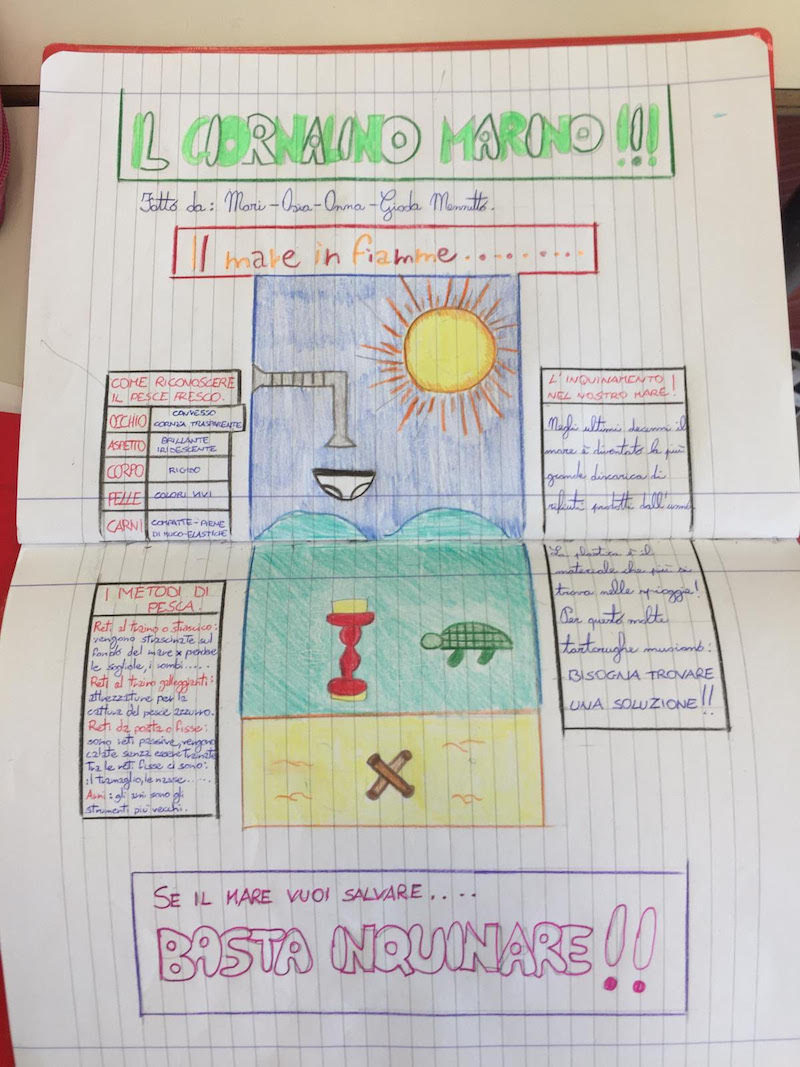 IL GIORNALINO MARINO !!!
Fatto da: Mari - Asia - Anna - Giada Mennitto.
Il mare in fiamme..........
COME RICONOSCERE
IL PESCE FRESCO.
OCCHIO CONVESSO
CORNIA TRASPARENTE
ASPETTO BRILLANTE
IRIDESCENTE
CORPO RIGIDO
PELLE COLORI VIVI
CARNI COMPATTE-PIENE
DI MUCO-ELASTICHE
I METODI DI
PESCA.
Reti al traino o strascico:
vengono strascinate sul
fondo del mare x prendere
le sogliole, i rombi.....
Reti al traino galleggianti:
attrezzature per la
cattura del pesce azzurro.
Reti da posta o fisse:
sono reti passive, vengono
calate senza essere trainate
tra le reti fisse ci sono:
il tramaglio, le nasse.....
Ami: gli ami sono gli
strumenti più vecchi.
L'INQUINAMENTO
NEL NOSTRO MARE!
Negli ultimi decenni il
mare è diventato la più
grande discarica di
rifiuti prodotti dall'uomo
La plastica è il
materiale che più si
trova nelle spiaggie!
Per questo molte
tartarughe muoiono:
BISOGNA TROVARE
UNA SOLUZIONE!!
SE IL MARE VUOI SALVARE....
BASTA INQUINARE!!